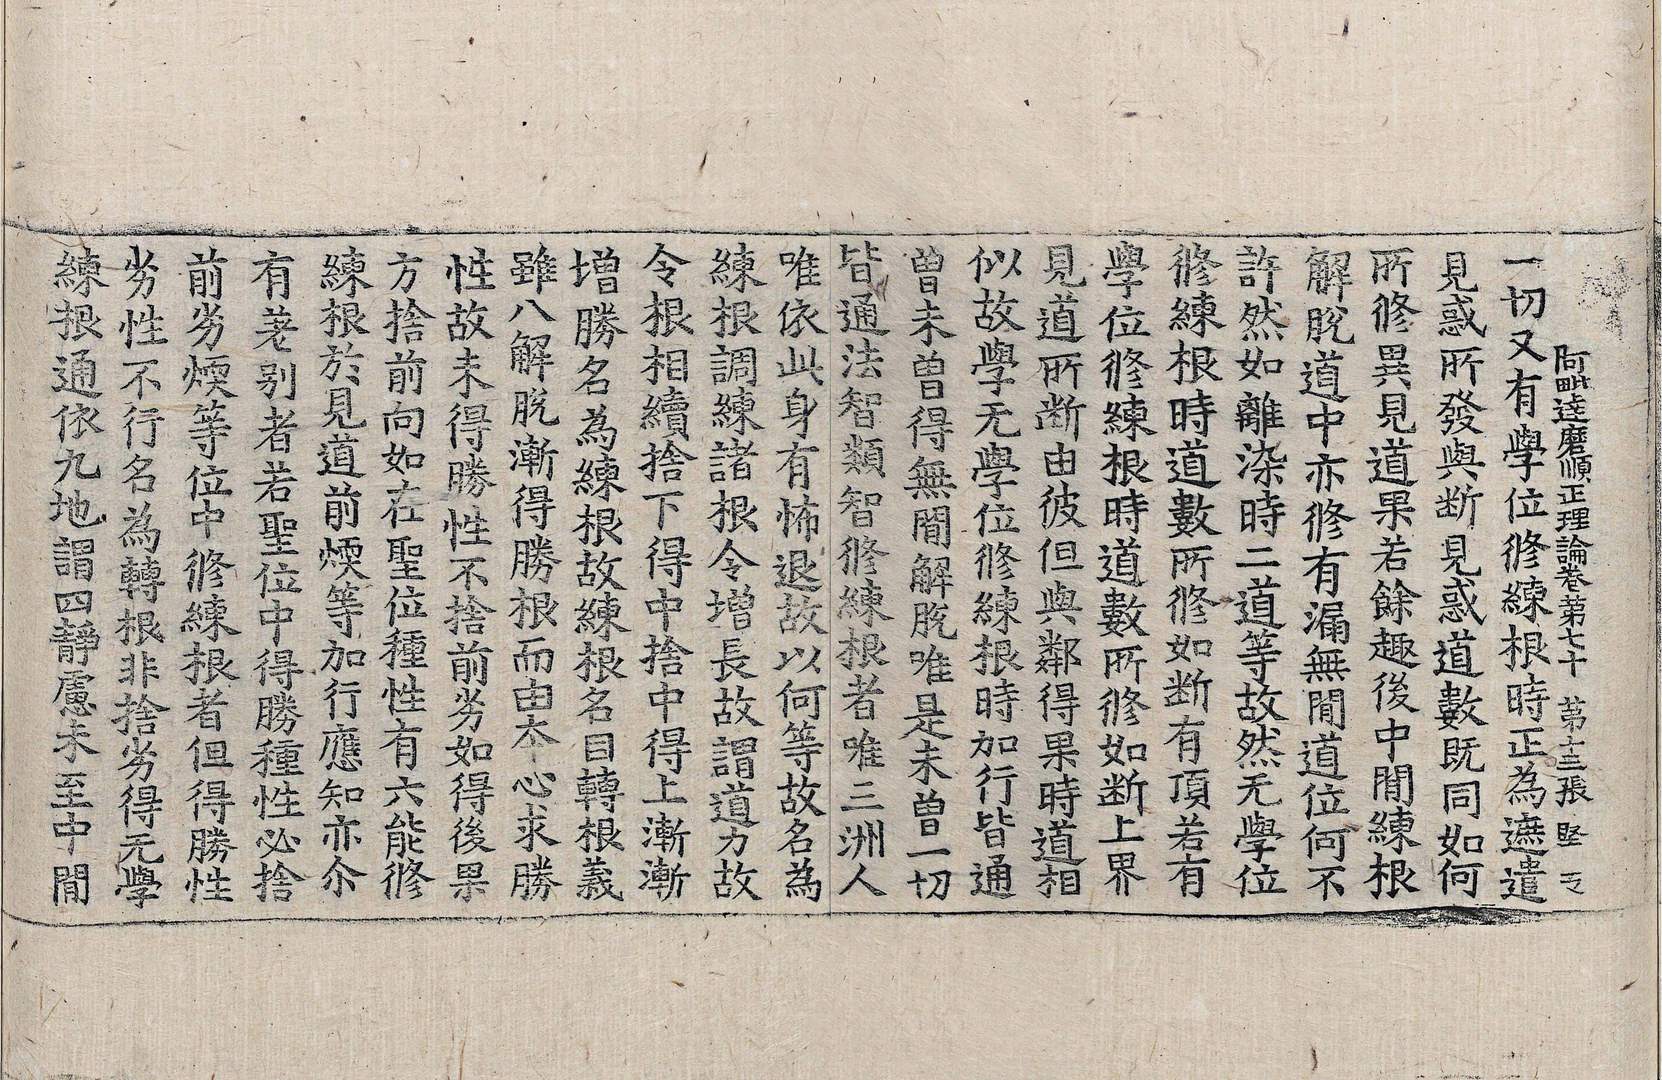 阿毗達磨順正理論卷第七十　第十三張　堅
一切又有學位修練根時正為遮遣
見惑所發與断見惑道數既同如何
所修異見道果若餘趣後中閒練根
解脫道中亦修有漏無閒道位何不
許然如離染時二道等故然无學位
修練根時道數所修如断有頂若有
學位修練根時道數所修如断上界
見道所断由彼但與鄰得果時道相
似故學无學位修練根時加行皆通
曾未曾得無閒解脫唯是未曾一切
皆通法智類智修練根者唯三洲人
唯依此身有怖退故以何等故名為
練根調練諸根令增長故謂道力故
令根相續捨下得中捨中得上漸漸
增勝名為練根故練根名目轉根義
雖八解脫漸得勝根而由本心求勝
性故未得勝性不捨前劣如得後果
方捨前向如在聖位種性有六能修
練根於見道前煗等加行應知亦尒
有差别者若聖位中得勝種性必捨
前劣煗等位中修練根者但得勝性
劣性不行名為轉根非捨劣得无學
練根通依九地謂四靜慮未至中閒